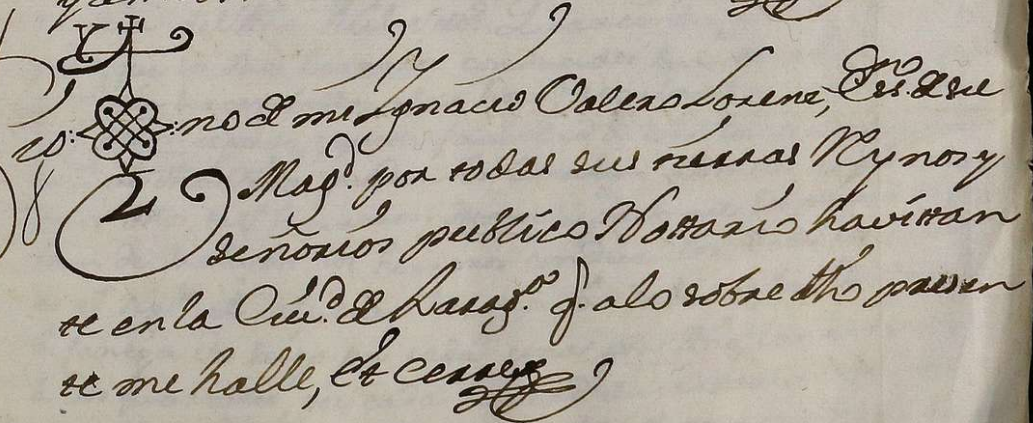 Sig:no de mi Ygnacio Valero Lorene, Es.no de su
Mag.d por todas sus tierras Reynos y
señorios publico Nottario havittan
te en la Ciu.d de Zarag.a q. a lo sobre dho presen
te me halle, et cerre